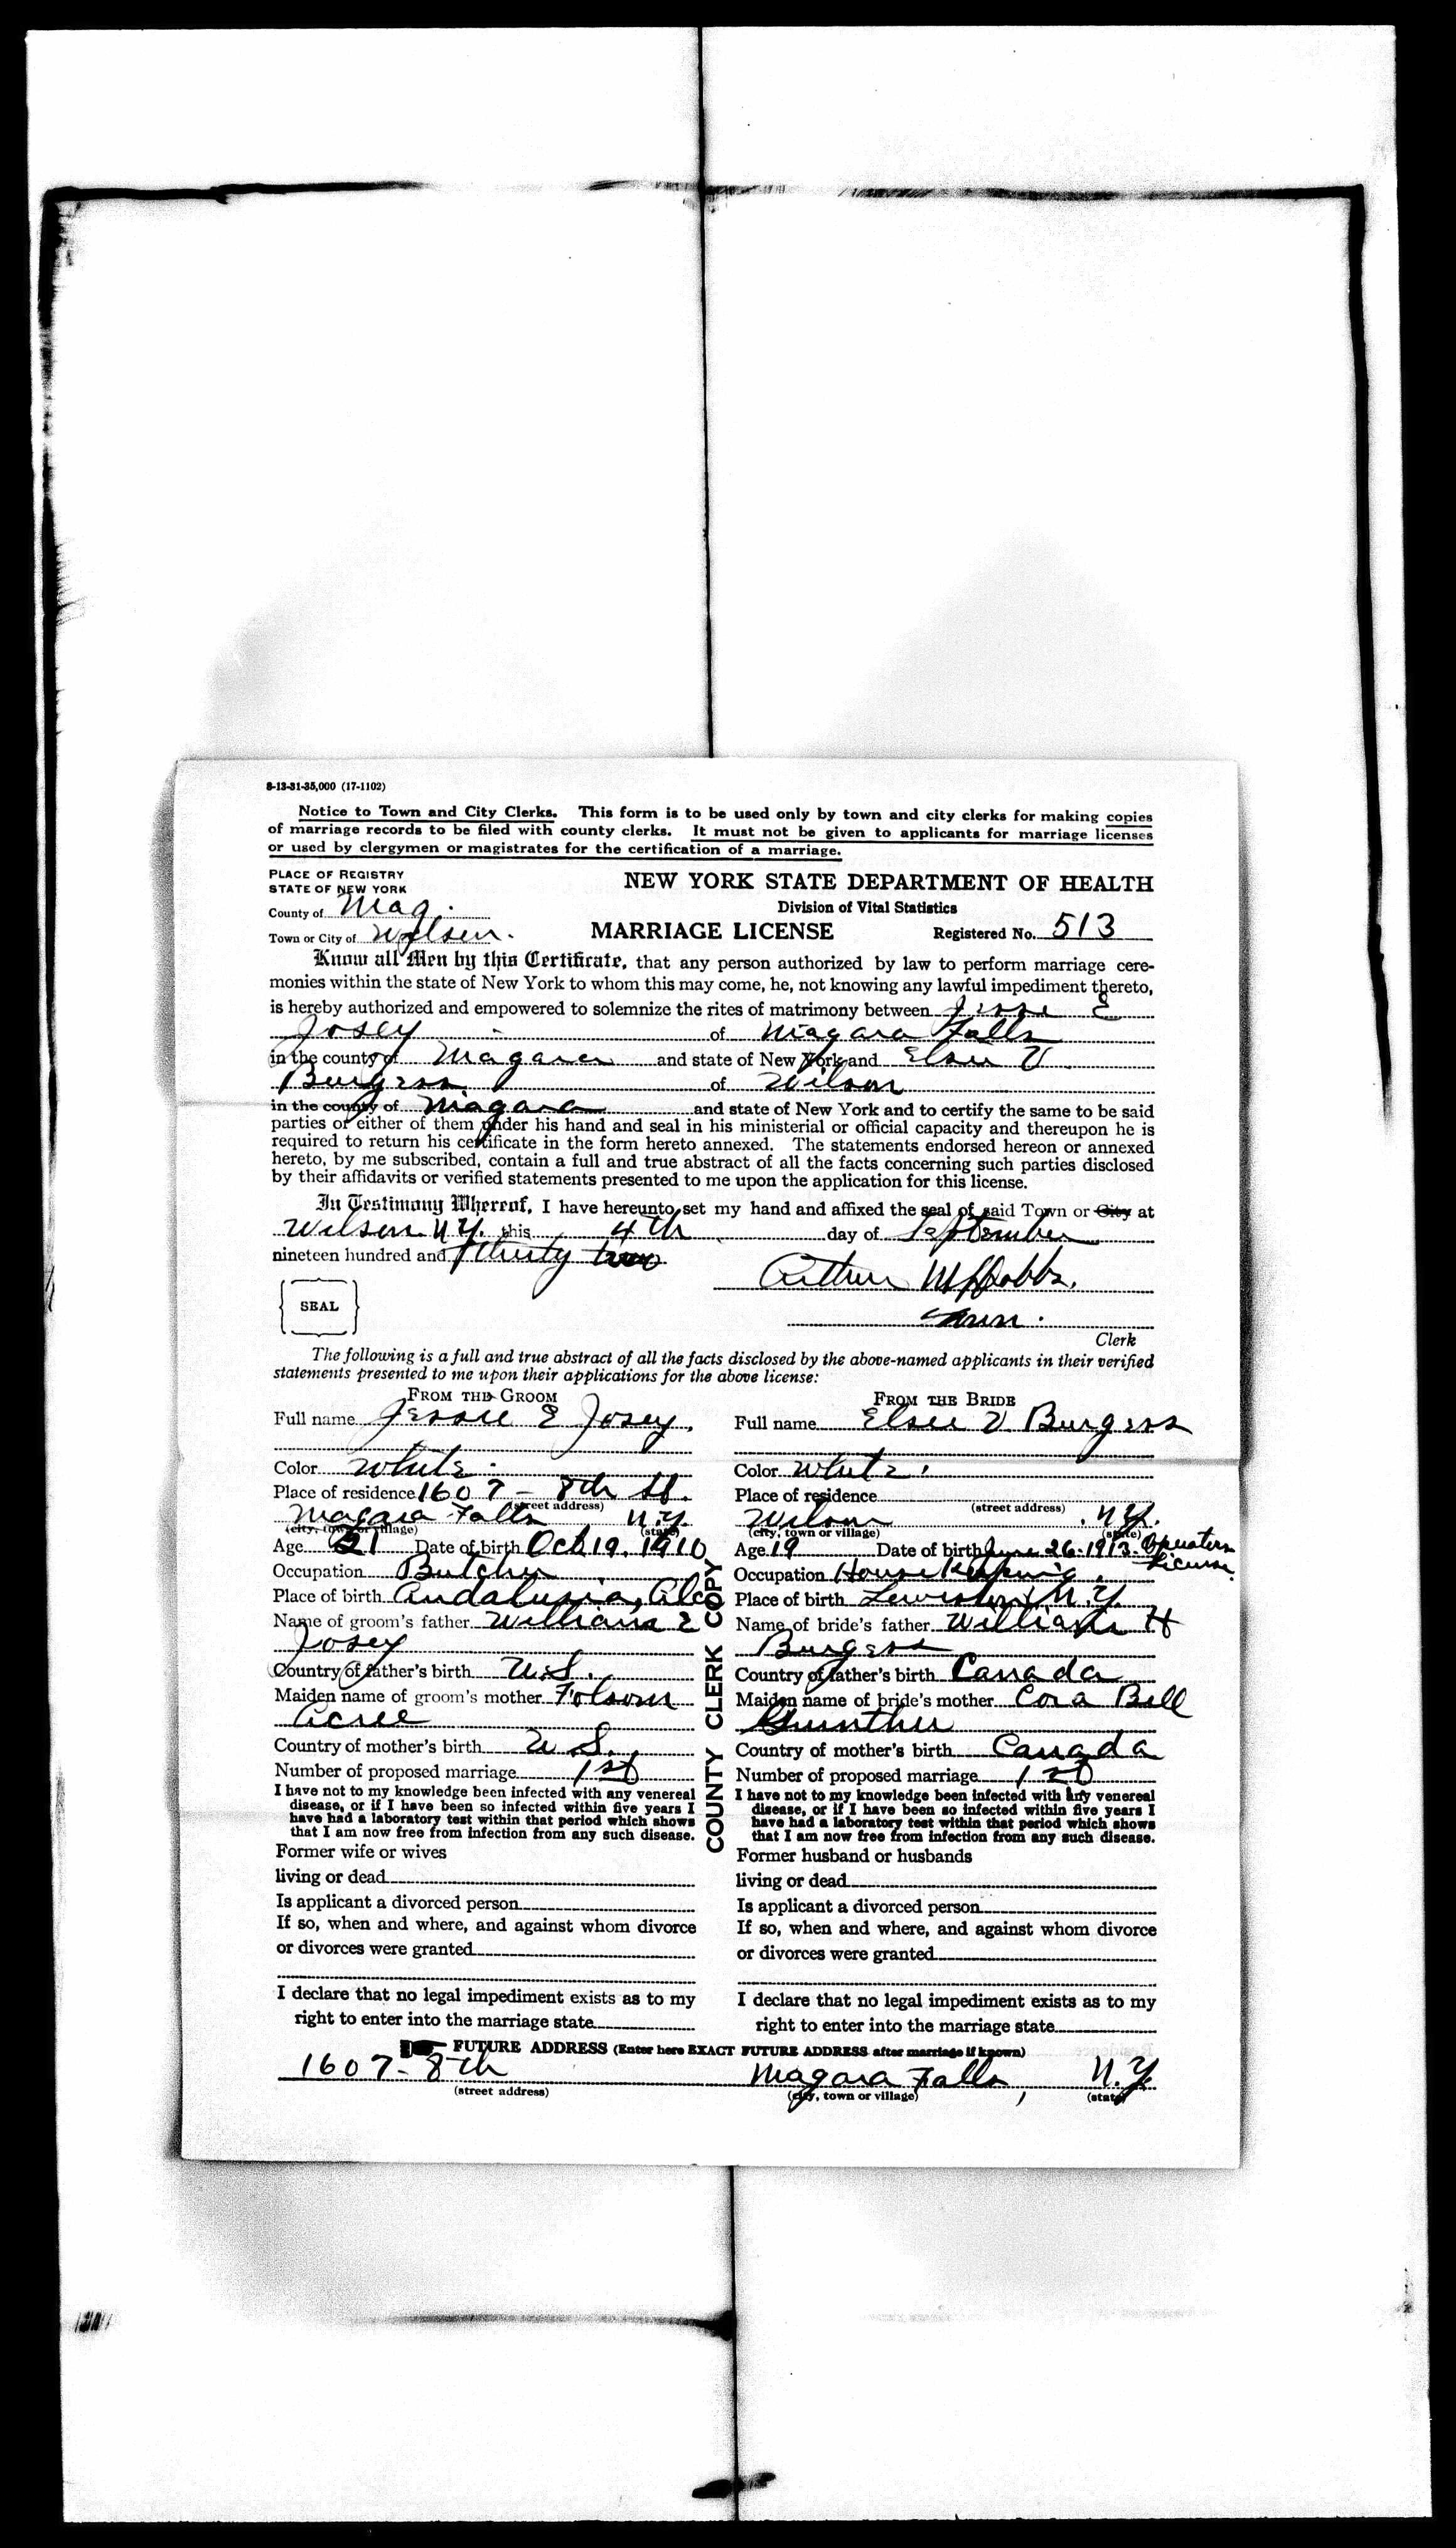 8-13-31-35,000 (17-1102)
Notice to Town and City Clerks. This form is to be used only by town and city clerks for making copies
of marriage records to be filed with county clerks. It must not be given to applicants for marriage licenses
or used by clergymen or magistrates for the certification of a marriage.
PLACE OF REGISTRY
STATE OF NEW YORK
NEW YORK STATE DEPARTMENT OF HEALTH
County of Niag.
Division of Vital Statistics
Town or City of Wilson. MARRIAGE LICENSE Registered No. 513
Know all Men by this Certificate, that any person authorized by law to perform marriage cere-
monies within the state of New York to whom this may come, he, not knowing any lawful impediment thereto,
is hereby authorized and empowered to solemnize the rites of matrimony between Jesse E
Josey of Niagara Falls
in the county of Niagara and state of New York and Elsie V
Burgess of Wilson
in the county of Niagara and state of New York and to certify the same to be said
parties or either of them under his hand and seal in his ministerial or official capacity and thereupon he is
required to return his certificate in the form hereto annexed. The statements endorsed hereon or annexed
hereto, by me subscribed, contain a full and true abstract of all the facts concerning such parties disclosed
by their affidavits or verified statements presented to me upon the application for this license.
In Testimony Whereof, I have hereunto set my hand and affixed the seal of said Town or City at
Wilson N.Y. this 4th day of September
nineteen hundred and thirty two
Arthur Dobbs.
SEAL
Town.
Clerk
The following is a full and true abstract of all the facts disclosed by the above-named applicants in their verified
statements presented to me upon their applications for the above license:
FROM THE GROOM
Full name Jessie E Josey.
Color White.
Place of residence 1607 - 8th St.
(street address)
Niagara Falls, N.Y.
(city, town or village) (state)
Age 21 Date of birth Oct 19. 1910
Occupation Butcher
Place of birth Andalusia, Ala
Name of groom's father William E
Josey
Country of father's birth U.S.
Maiden name of groom's mother Folsom
Acree
Country of mother's birth U.S.
Number of proposed marriage 1st
I have not to my knowledge been infected with any venereal
disease, or if I have been so infected within five years I
have had a laboratory test within that period which shows
that I am now free from infection from any such disease.
Former wife or wives
living or dead
Is applicant a divorced person
If so, when and where, and against whom divorce
or divorces were granted
I declare that no legal impediment exists as to my
right to enter into the marriage state
COUNTY CLERK COPY
FROM THE BRIDE
Full name Elsie V. Burgess
Color White.
Place of residence
(street address)
Wilson, N.Y.
(city, town or village) (state)
Age 19 Date of birth June 26-1913. Operators
License.
Occupation House Keeping.
Place of birth Lewiston N.Y.
Name of bride's father William H
Burgess
Country of father's birth Canada
Maiden name of bride's mother Cora Bell
Gunther
Country of mother's birth Canada
Number of proposed marriage 1st
I have not to my knowledge been infected with any venereal
disease, or if I have been so infected within five years I
have had a laboratory test within that period which shows
that I am now free from infection from any such disease.
Former husband or husbands
living or dead
Is applicant a divorced person
If so, when and where, and against whom divorce
or divorces were granted
I declare that no legal impediment exists as to my
right to enter into the marriage state
FUTURE ADDRESS (Enter here EXACT FUTURE ADDRESS after marriage if known)
1607 - 8th Niagara Falls, N.Y.
(street address) (city, town or village) (state)